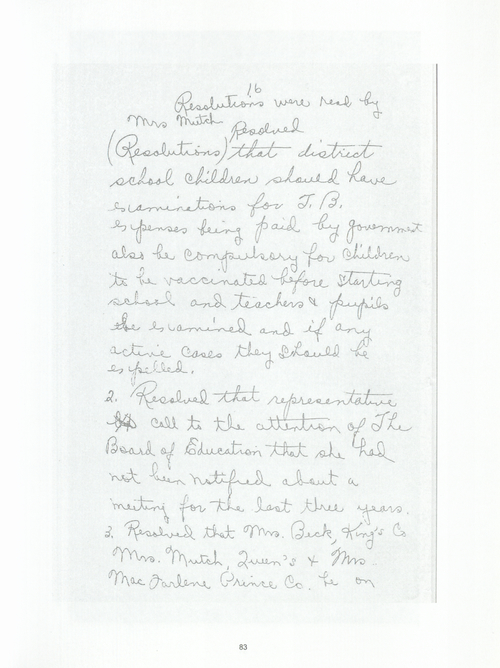 16
Resolutions were read by
Mrs Mutch Resolved
(Resolutions) that district
school children should have
examinations for T. B.
expenses being paid by government
also be compulsory for children
to be vaccinated before starting
school and teachers & pupils
be examined and if any
active cases they should be
expilled.
2. Resolved that representative
call to the attention of The
Board of Education that she had
not been notified about a
meeting for the last three years.
3. Resolved that Mrs. Beck, King's Co
Mrs. Mutch, Queen's & Mrs.
Mac Farlene Prince Co. be on
83